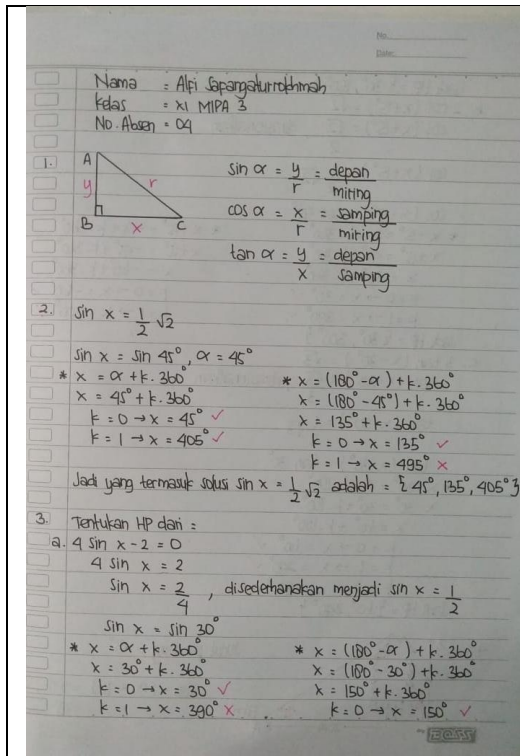 No.
Date:
Nama : Alfi Sapargaturrokhmah
Kelas = XI MIPA 3
No. Absen = 04
1.
A
y
r
B
x
C
sin α = y/r = depan/miring
cos α = x/r = samping/miring
tan α = y/x = depan/samping
2. sin x = 1/2 √2
sin x = sin 45°, α = 45°
* x = α + k. 360°
x = 45° + k. 360°
k = 0 → x = 45° ✓
k = 1 → x = 405° ✓
* x = (180° - α) + k. 360°
x = (180° - 45°) + k. 360°
x = 135° + k. 360°
k = 0 → x = 135° ✓
k = 1 → x = 495° ×
Jadi yang termasuk solusi sin x = 1/2 √2 adalah = {45°, 135°, 405°}
3. Tentukan HP dari =
a. 4 sin x - 2 = 0
4 sin x = 2
sin x = 2/4 , disederhanakan menjadi sin x = 1/2
sin x = sin 30°
* x = α + k. 360°
x = 30° + k. 360°
k = 0 → x = 30° ✓
k = 1 → x = 390° ×
* x = (180° - α) + k. 360°
x = (180° - 30°) + k. 360°
x = 150° + k. 360°
k = 0 → x = 150° ✓